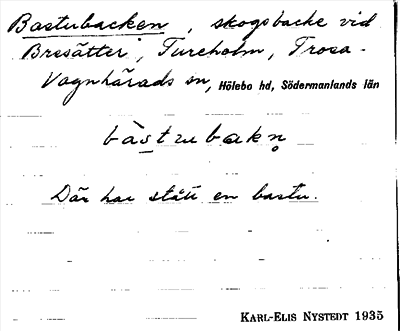 Bastubacken, skogsbacke vid
Bresätter, Tureholm, Trosa-
Vagnhärads sn, Hölebo hd, Södermanlands län
bàstubakn̥
Där har stått en bastu.
KARL-ELIS NYSTEDT 1935